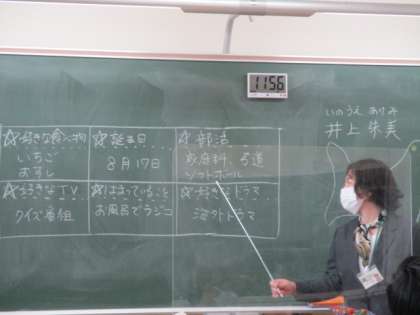 1156
いのうえ あけみ
井上 朱美
☆好きな食べ物
いちご
おすし
☆誕生日
8月17日
☆部活
家庭科、弓道
ソフトボール
☆好きなTV
クイズ番組
☆はまっていること
お風呂でラジコ
☆好きなドラマ
海外ドラマ